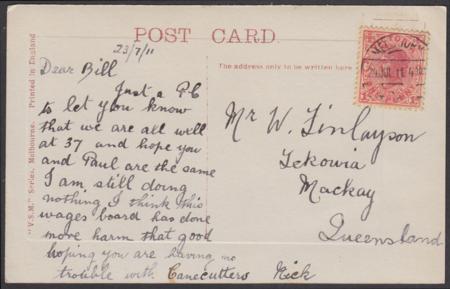 POST CARD.
23/7/11
The address only to be written here
"V.S.M." Series, Melbourne. Printed in England
Dear Bill
Just a P.C
to let you know
that we are all well
at 37 and hope you
and Paul are the same
I am, still doing
nothing I think this
wages board has done
more harm that good
hoping you are having no
trouble with Canecutters Mick
Mr W. Finlayson
Tekowia
Mackay
Queensland